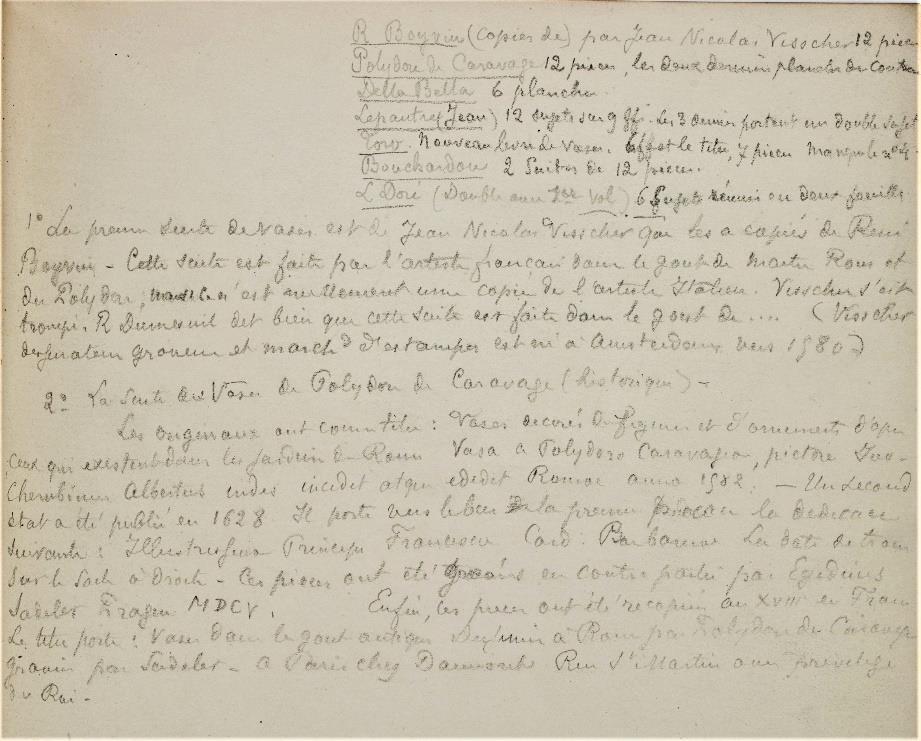 R Boyvin (Copies de) par Jean Nicolas Visscher 12 pieces
Polydore de Caravage 12 pieces, les deux derniers planches de
Della Bella 6 planches.
Lepautre (Jean) 12 sujets sur 9 ff. Les 3 derniers portent un double sujet
Toro. Nouveau livre de vases. 6ff et le titre, 7 pieces Manque le n° 4.
Bouchardon 2 Suites de 12 pieces.
L Doré (Double aux 1er Vol) 6 Sujets réunis en deux feuilles
1° La premr Suite de vases est de Jean Nicolas Visscher qui les a copiés de René
Boyvin - Cette suite est faite par l'artiste français dans le gout de maitre Roux et
du Polydore, mais ce n'est nullement une copie de l'artiste Italien. Visscher s'est
trompé. R Dumesnil dit bien que cette suite est faite dans le goût de .... (Visscher
dessinateur graveur et marchd d'estampes est né à Amsterdam vers 1580)
2° La suite des Vases de Polydore de Caravage (historique) -
Les originaux ont comme titre : Vases decorés de figures et d'ornements d'apres
ceux qui existent dans les jardins de Rome Vasa a Polydoro Caravagio, pictore
Cherubinus Albertus incidit atque edidit Romae anno 1582. - Un second
état a été publié en 1628. Il porte vers le bas de la premr la dedicace
suivante : Illustrissimo Principi Francisco Card. Barbarino La date se trouve
sur le socle à droite - Ces pieces ont été gravées en contre partie par Egidius
Sadeler Pragen MDCV. Enfin, ces pieces ont été recopiées au XVIIIe en France
Le titre porte : Vases dans le gout antique Dessinés à Rome par Polydore de Caravage
gravés par Sadeler - a Paris chez Daumont Rue St Martin avec privilege
du Roi -